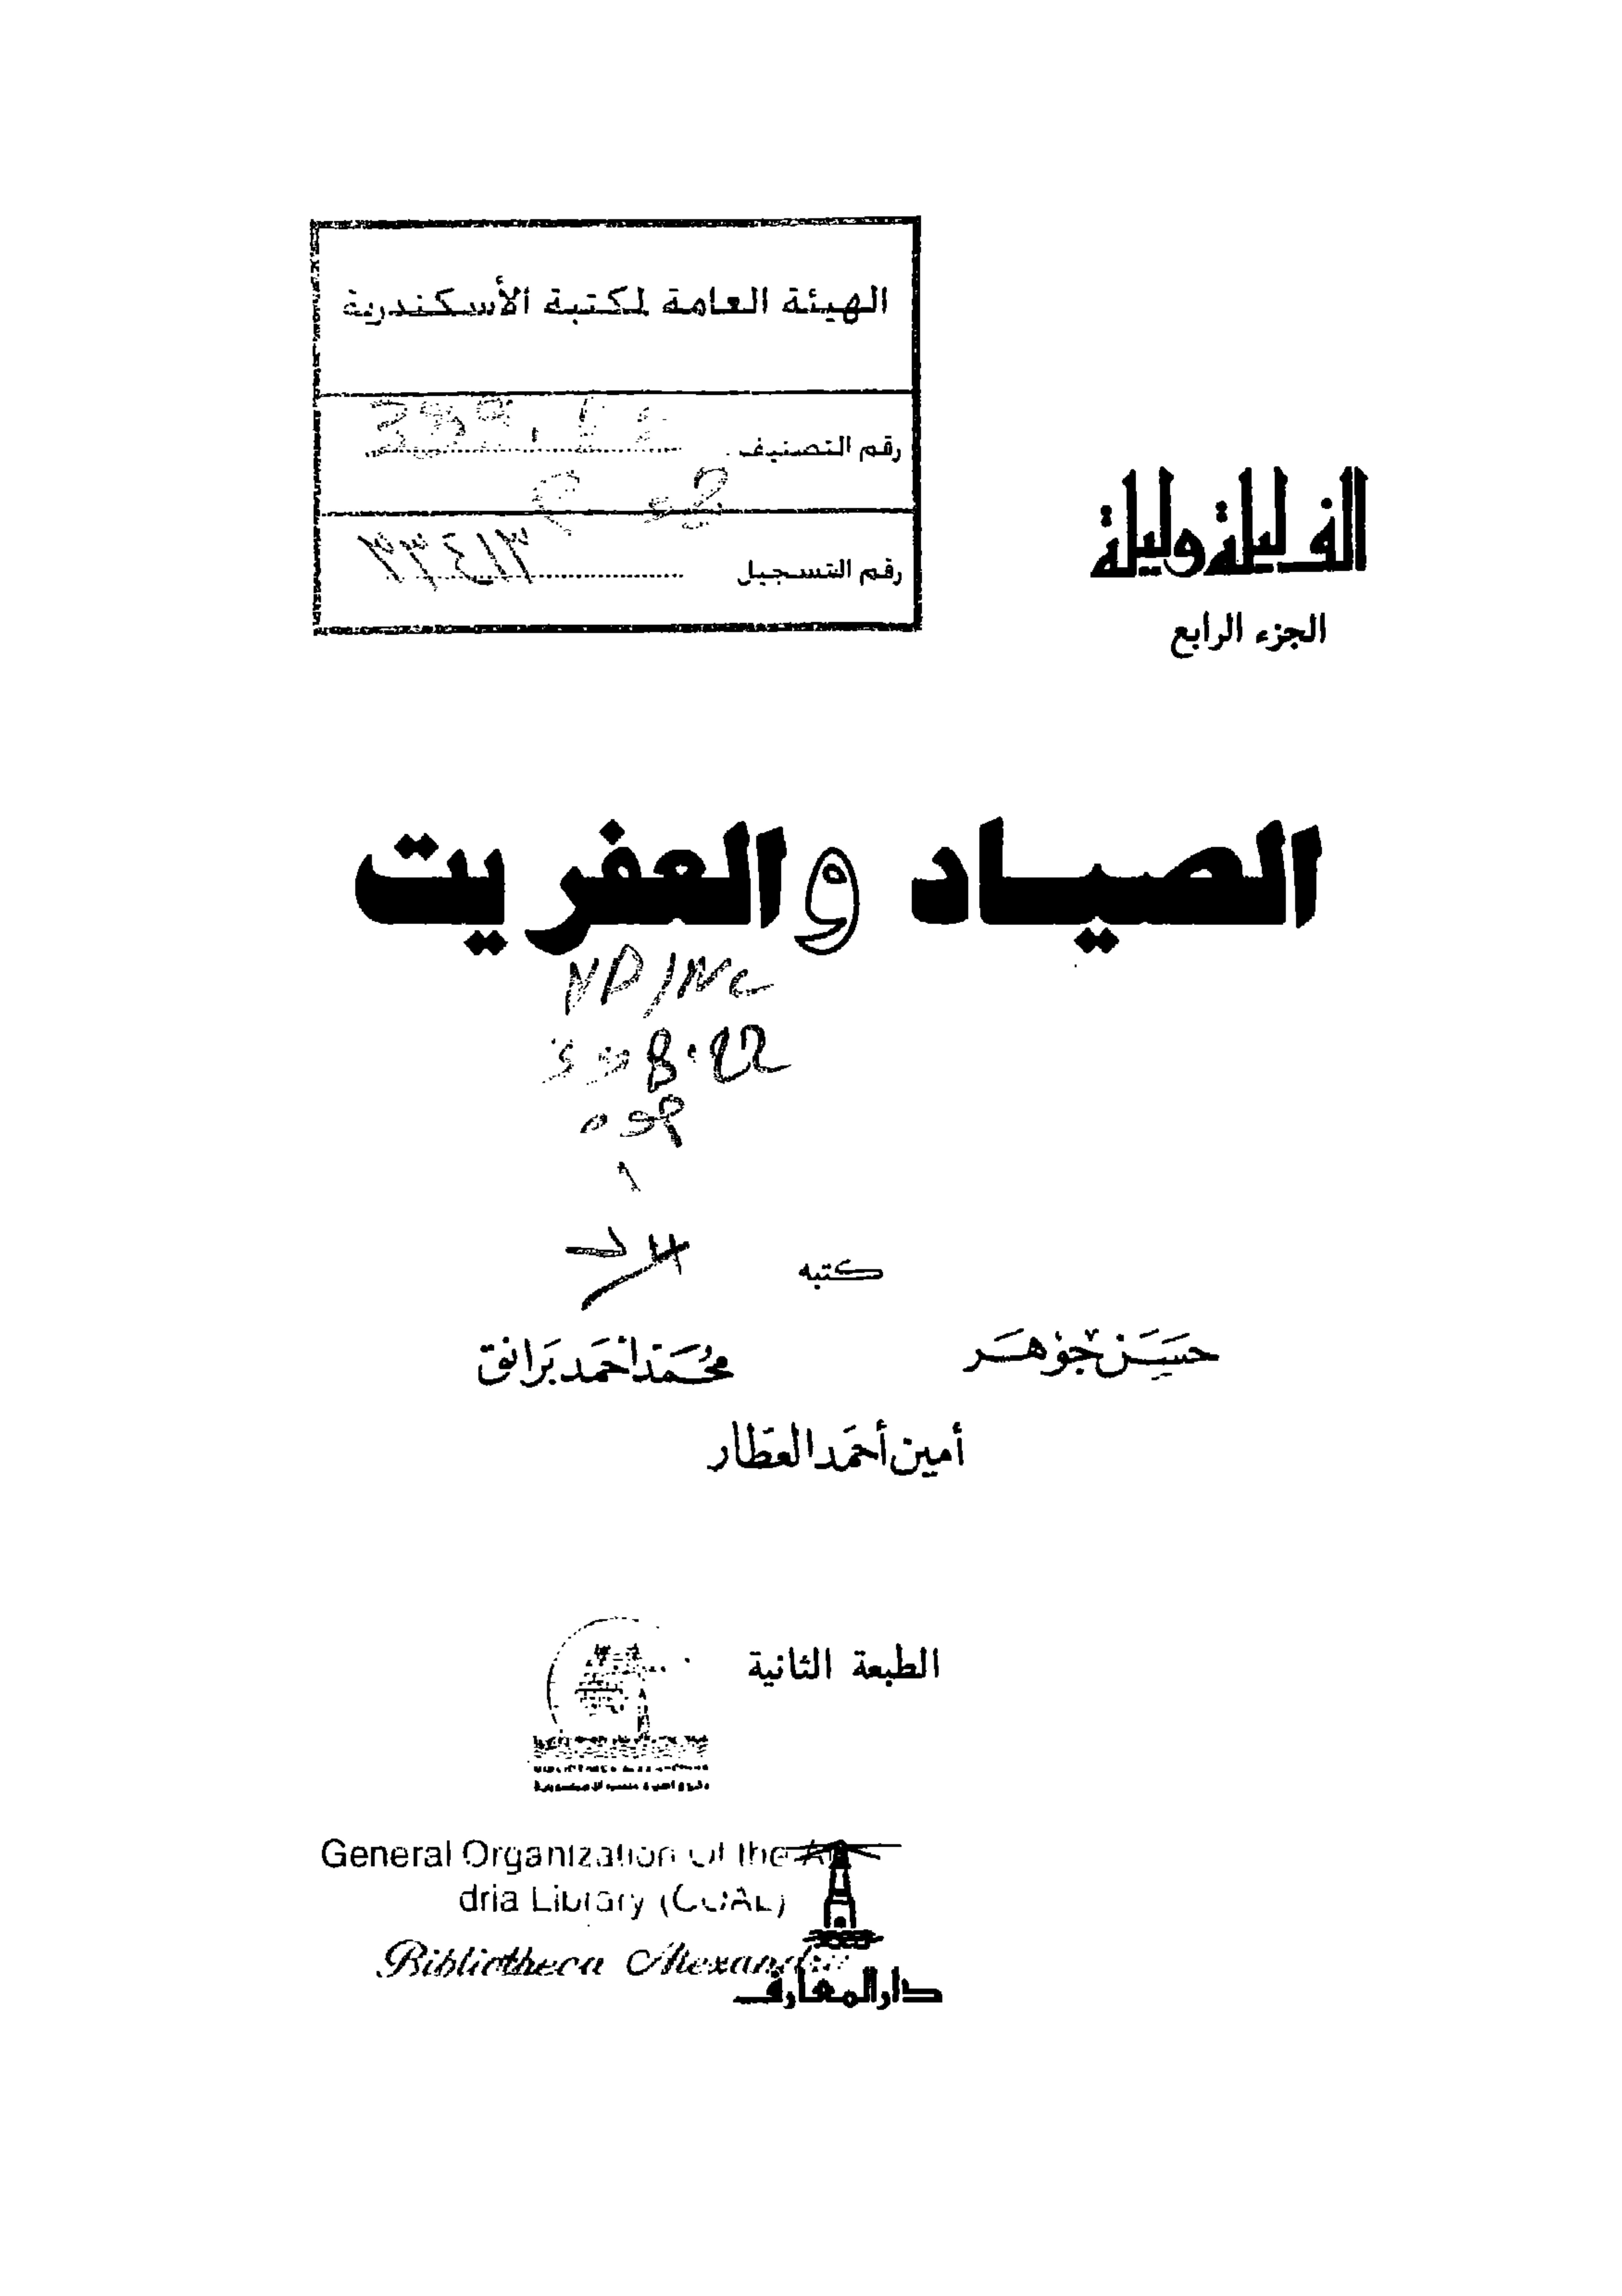 الهيئة العامة لمكتبة الأسكندرية
رقم التصنيف
رقم التسجيل ٣٣٤١٣
ألف ليلة وليلة
الجزء الرابع
الصياد والعفريت
كتبه
حسن جوهر
محمد أحمد برانق
أمين أحمد العطار
الطبعة الثانية
General Organization Of the
dria Library (GOAL)
Bibliotheca
دار المعارف